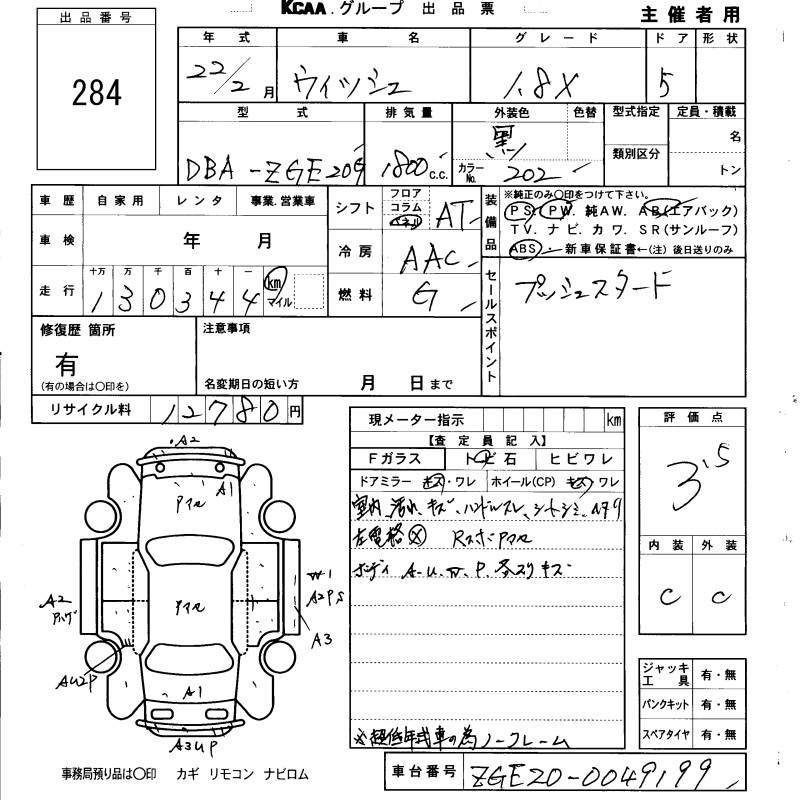 KCAA.グループ 出品票
主催者用
出品番号
284
年式 車名 グレード ドア 形状
22/2月 ウィッシュ 1.8X 5
型式 排気量 外装色 色替 型式指定 定員・積載
DBA-ZGE20G 1800c.c. 黒 カラーNo. 202 類別区分 名 トン
車歴 自家用 レンタ 事業.営業車
シフト フロア コラム パネル AT
装備品 ※純正のみ○印をつけて下さい。
PS. PW. 純AW. AB(エアバック)
TV. ナビ. カワ. SR(サンルーフ)
ABS. 新車保証書←(注)後日送りのみ
車検 年 月
冷房 AAC
走行 十万 万 千 百 十 一
130344 km マイル
燃料 G
セールスポイント プッシュスタード
修復歴 箇所
有
(有の場合は○印を)
注意事項
名変期日の短い方 月 日まで
リサイクル料 12780円
現メーター指示 km
【査定員記入】
Fガラス トビ石 ヒビワレ
ドアミラー キズ・ワレ ホイール(CP) キズ・ワレ
室内 汚れ、キズ、ハンドルスレ、シートシミ
左電格 Rスポ アマセ
ボディ A.U.W.P. 多スリキズ
※超低年式車の為ノーフレーム
評価点
3.5
内装 外装
C C
ジャッキ工具 有・無
パンクキット 有・無
スペアタイヤ 有・無
A2
A1
A2
W1
A2PS
A3
AU2P
A1
A3UP
事務局預り品は○印 カギ リモコン ナビロム
車台番号 ZGE20-0049199